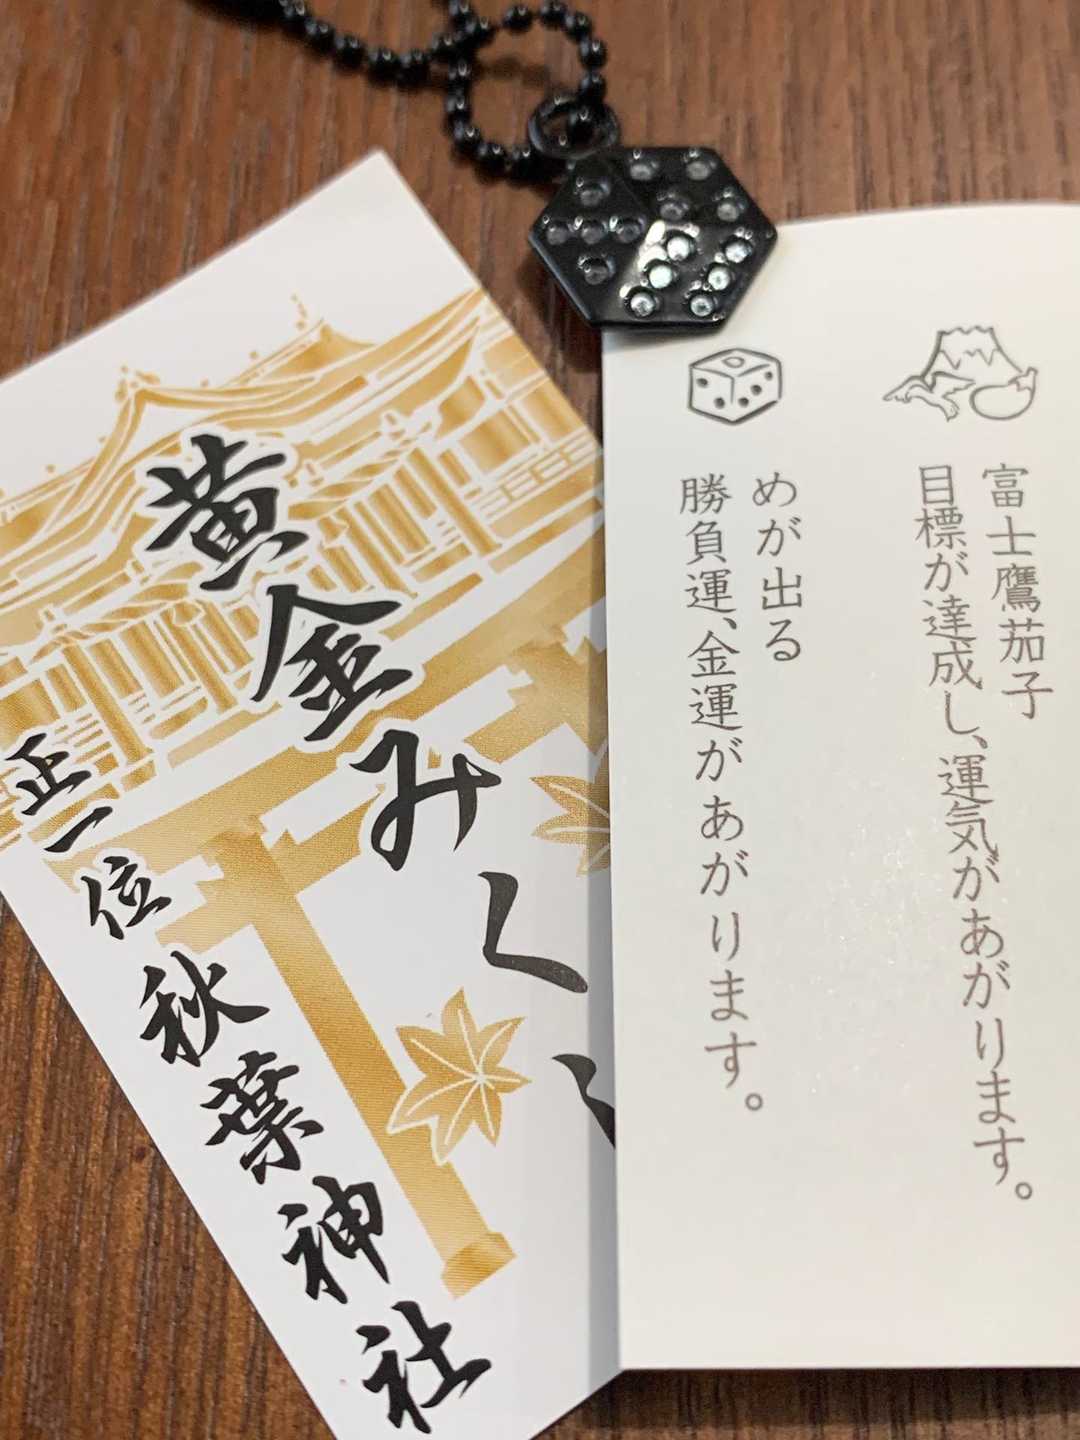 黄金みくじ
正一位秋葉神社
富士鷹茄子
目標が達成し、運気があがります。
めが出る
勝負運、金運があがります。